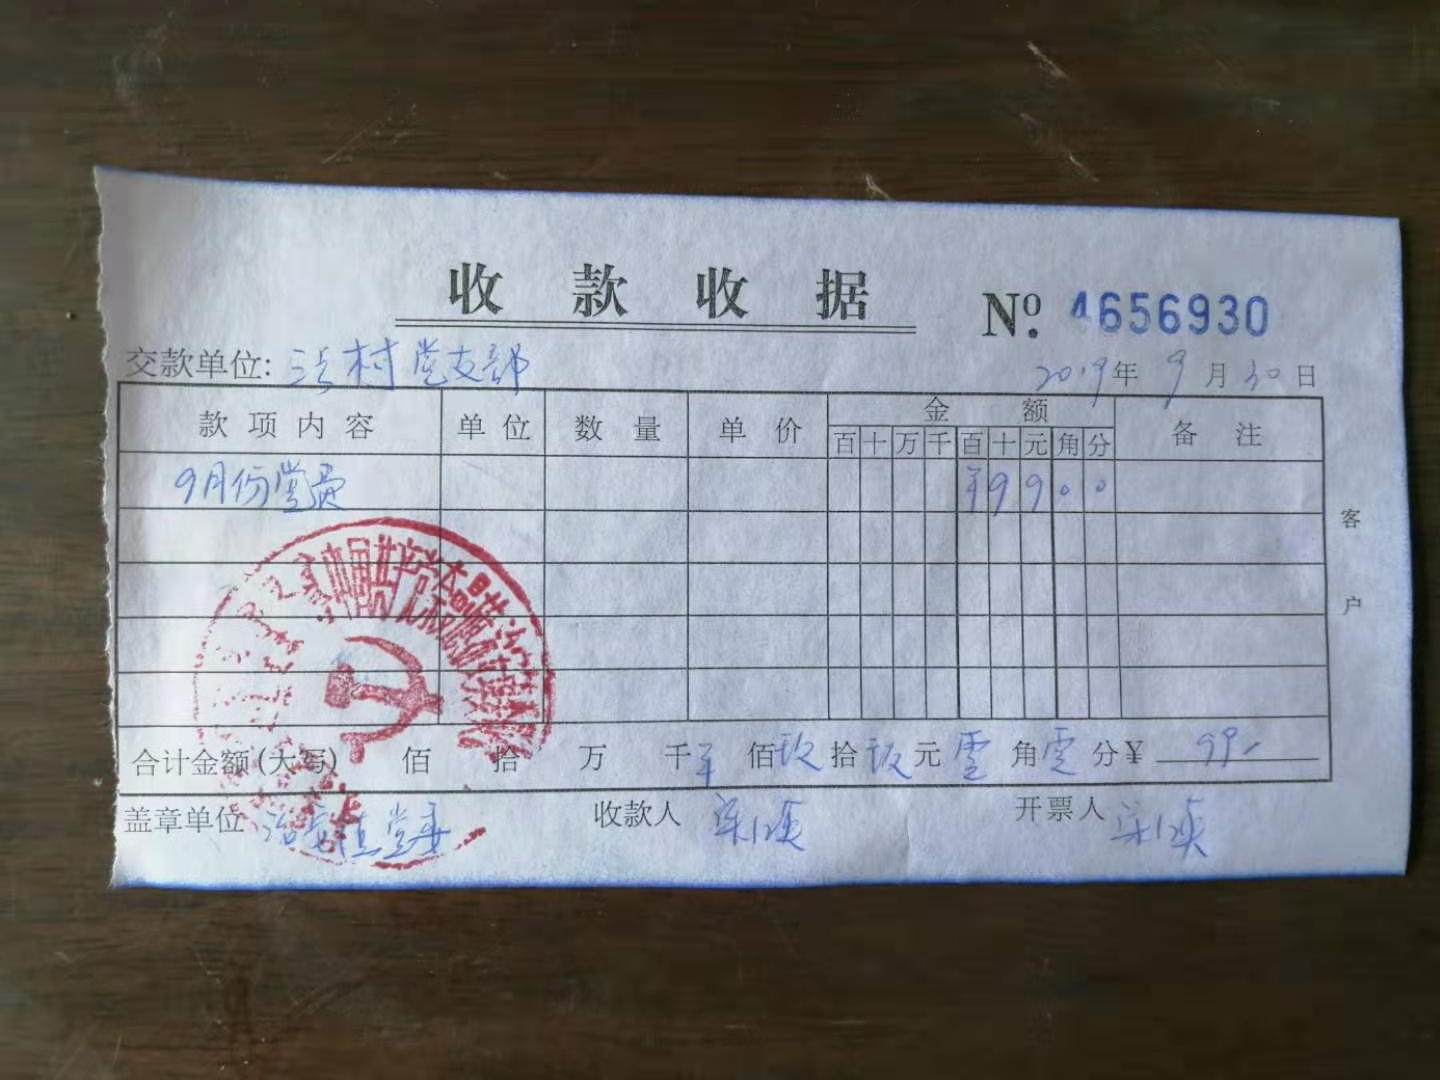 收款收据 Nº 4656930
交款单位: 村党支部 2019年9月30日
款项内容 单位 数量 单价 金额 备注
百 十 万 千 百 十 元 角 分
9月份党费 ¥9900
客户
合计金额(大写) 佰 拾 万 千 佰玖拾玖元零角零分¥ 99-
盖章单位 治安镇党委 收款人 开票人